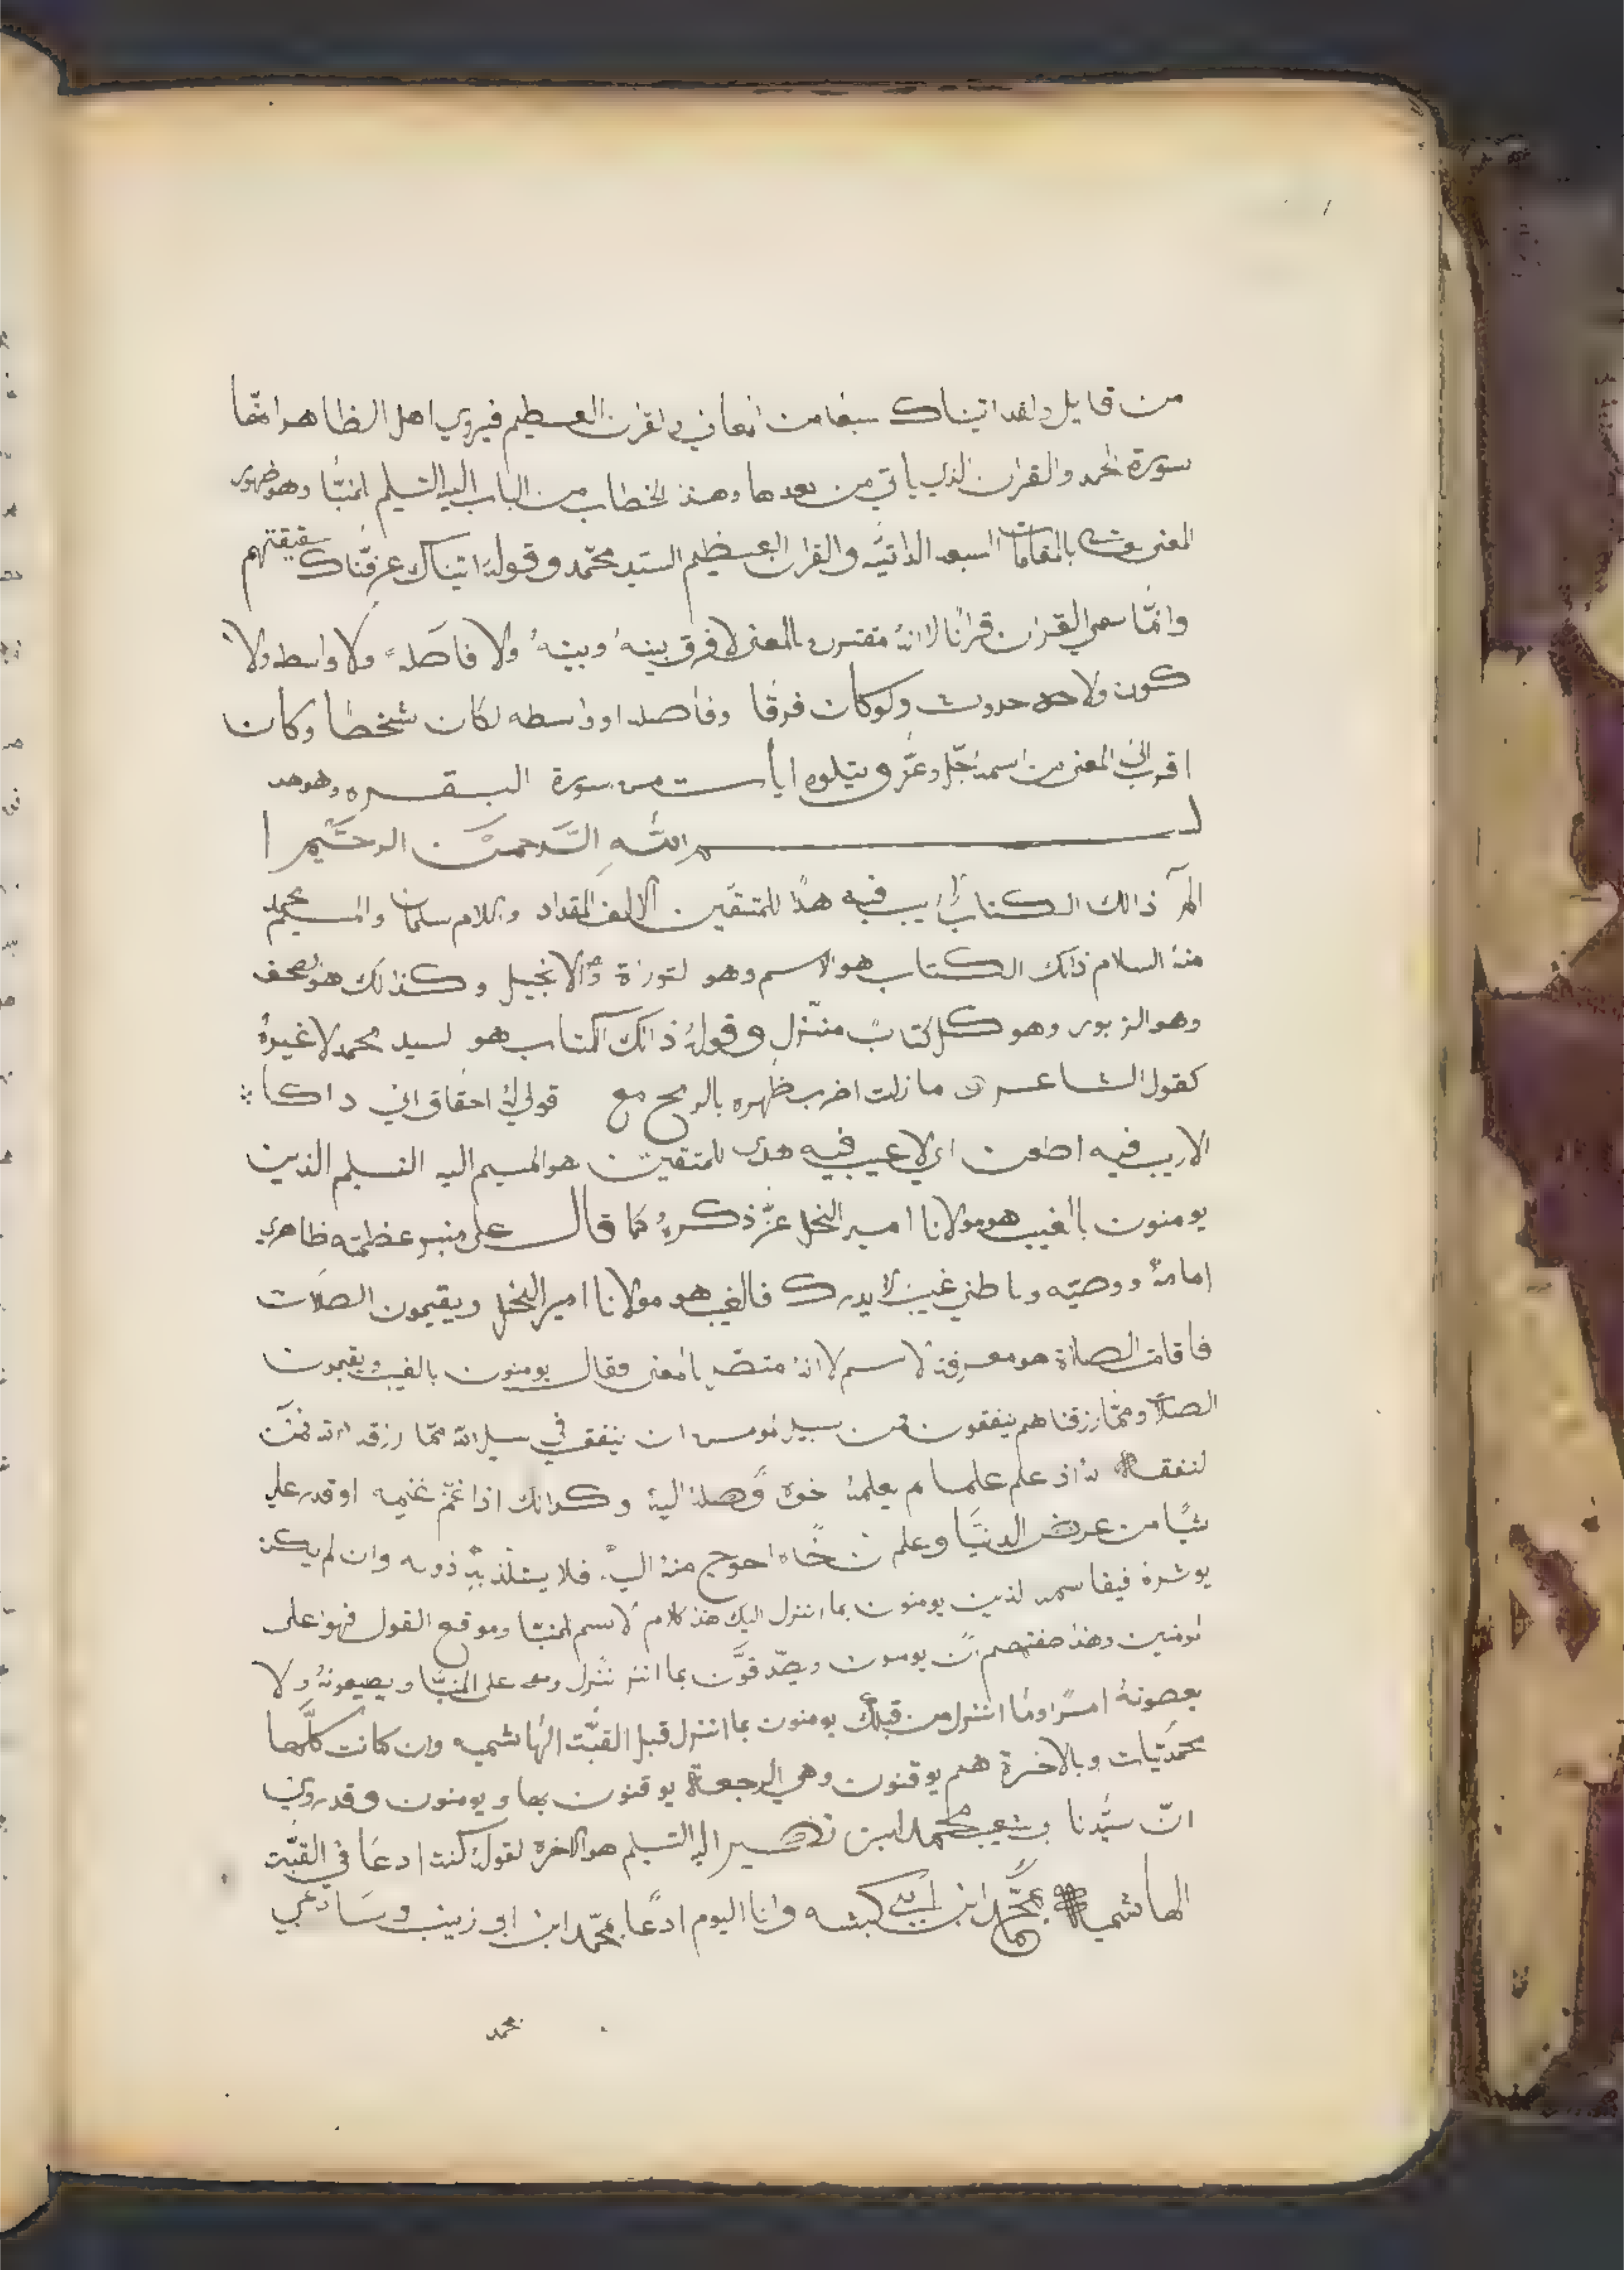 من قايل ولقد اتيناك سبعا من المعاني والقران العظيم فيروي اهل الظاهر انها
سورة الحمد والقران الذي ياتي من بعدها وهذا الخطاب من الباب اليه التسليم لمنبّا وهو ظهور
المعنى بالمقامات السبعه الذاتيّه والقران العظيم السيّد محمّد وقولهُ اتيناك عرفّناك حقيقتهم
وانّما سمي القران قرانا لانهُ مقترن بالمعنى لا فرق بينهُ وبينهُ ولا فاصلة ولا واسطه ولا
كون ولا حدوث ولو كان فرقا وفاصله او واسطه لكان شخطا وكان
اقرب الى المعنى من اسمه جّل وعّز ويتلوه ايات من سورة البقره وهو هد
بسم اللّه الرّحمن الرحيم
الم ذالك الكتاب لا ريب فيه هدًا للمتقين الالف المقداد واللام سلمان والميم محمد
منهُ السلام ذالك الكتاب هو الاسم وهو لتوراة والانجيل وكذالك هو لصحف
وهو الزبور وهو كل كتاب منّزل وقولهُ ذالك الكتاب هو لسيد محمد لا غيرهُ
كقول الشاعر مازلت اضرب ظهره بالرمح مع قولي لهُ احقاق اني داكا
لاريب فيه اطعن اي لا عيب فيه هدى للمتقين هو الميم اليه التسليم الذين
يومنون بالغيب هو مولانا امير النحل عزّ ذكرهُ كما قال على منبر عظمته ظاهري
امامهُ ووصيّه وباطني غيب لا يدرك فالغيب هو مولانا امير النحل ويقيمون الصلات
فاقامت الصلاة هو معرفة لاسم لانهُ متصّل بالمعنى فقال يومنون بالغيب ويقيمون
الصلاة وممّا رزقناهم ينفقون فمن سبيل لمومن ان ينفق في سبيل اللّه ممّا رزقه اللّه فمن
لنفقه انهُ اذ علم علما لم يعلمهُ خوه وّصلهُ اليهُ وكذالك اذا غنّم غنيمه او قدر على
شيًا من عرض الدنيا وعلم ن خّاه احوج منهُ اليه فلا يتلّذ به دونه وان لم يكن
يوثرهُ فيقاسمه لذين يومنون بما انزل اليك هذ كلام لاسم لمنبّا وموقع القول فهو على
لومنين وهذا صفتهم ان يومنون ويصّدقوّن بما انزل على المنبّا ويطيعونهُ ولا
يعصونهُ امرًا وما انزل من قبلك يومنون بما انزل قبل القبّت الهاشميه وان كانت كلّها
محمّديّات وبالاخرة هم يوقنون وهي الرجعة يوقنون بها ويومنون وقد روي
انّ سيّدنا ابو شعيب محمد ابن نصير اليه التسليم هو الاخرة لقولهُ كنت ادعا في القبّت
الهاشميه بمحّمد ابن ابي كبشه وانا اليوم ادّعا بمحّمد ابن ابو زينب وسادعي
بمحمد